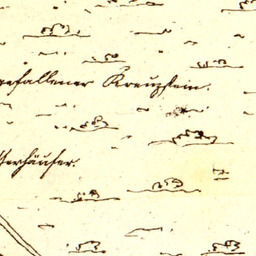 gefallener Kreuzstein.
sterhäuser.